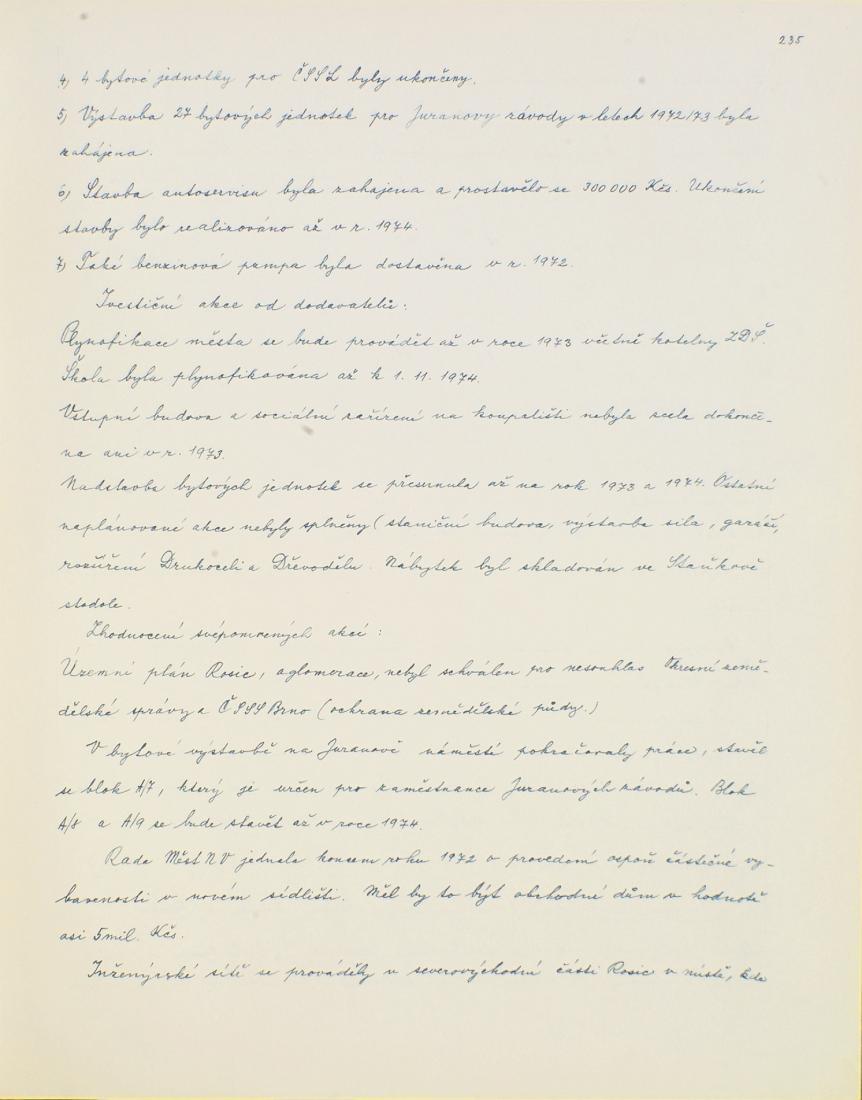 235
4) 4 bytové jednotky pro ČSSL byly ukončeny.
5) Výstavba 27 bytových jednotek pro Juranovy závody v letech 1972/73 byla
zahájena.
6) Stavba autoservisu byla zahájena a prostavělo se 300 000 Kčs. Ukončení
stavby bylo realizováno až v r. 1974.
7) Také benzinová pumpa byla dostavěna v r. 1972.
Ivestiční akce od dodavatelů:
Plynofikace města se bude provádět až v roce 1973 včetně kotelny ZDŠ.
Škola byla plynofikována až k 1. 11. 1974.
Vstupní budova a sociální zařízení na koupališti nebyla zcela dokonče-
na ani v r. 1973.
Nadstavba bytových jednotek se přesunula až na rok 1973 a 1974. Ostatní
naplánované akce nebyly splněny (staniční budova, výstavba sila, garáží,
rozšíření Drukocelu a Dřevodělu. Nábytek byl skladován ve Staňkově
stodole.
Zhodnocení svépomocných akcí:
Územní plán Rosic, aglomerace, nebyl schválen pro nesouhlas Okresní země-
dělské správy a ČSSS Brno (ochrana zemědělské půdy.)
V bytové výstavbě na Juranově náměstí pokračovaly práce, stavěl
se blok A/7, který je určen pro zaměstnance Juranových závodů. Blok
A/8 a A/9 se bude stavět až v roce 1974.
Rada MěstNV jednala koncem roku 1972 o provedení aspoň částečné vy-
bavenosti v novém sídlišti. Měl by to být obchodní dům v hodnotě
asi 5mil. Kčs.
Inženýrské sítě se prováděly v severovýchodní části Rosic v místě, kde